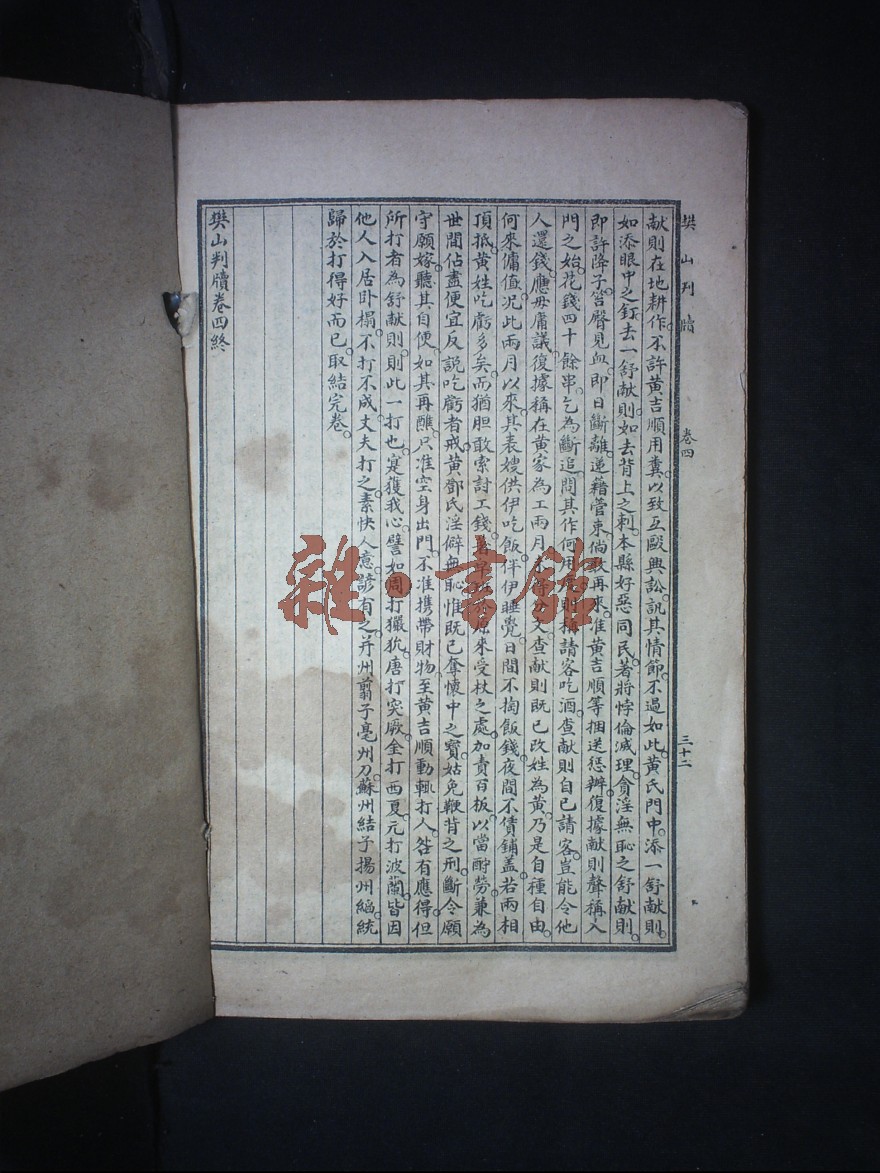 樊山判牘 卷四 三十二
献則在地耕作。不許黄吉順用糞。以致互毆興訟。訊其情節。不過如此。黄氏門中。添一舒献則。
如添眼中之釘。去一舒献則。如去背上之刺。本縣好惡同民。著將悖倫滅理。貪淫無恥之舒献則。
即許降子。笞臀見血。即日斷離。遞籍管束。倘敢再來。准黄吉順等捆送惩辦。復據献則聲稱入
門之始。花錢四十餘串。乞為斷追。問其作何用度。則稱請客吃酒。查献則自已請客。豈能令他
人還錢。應毋庸議。復據稱在黄家為工兩月。未得分文。查献則既已改姓為黄。乃是自種自由。
何來傭值。况此兩月以來。其表嫂供伊吃飯。伴伊睡覺。日間不掏飯錢。夜間不賃鋪盖。若兩相
頂抵。黄姓吃虧多矣。而猶胆敢索討工錢。著皂班於原來受杖之處。加責百板。以當酧勞。兼為
世間佔盡便宜反説吃虧者戒。黄鄧氏淫僻無恥。惟既已奪懷中之寳。姑免鞭背之刑。斷令願
守願嫁。聽其自便。如其再醮。只准空身出門。不准携帶財物。至黄吉順動輒打人。咎有應得。但
所打者為舒献則。則此一打也。寔獲我心。譬如周打玁狁。唐打突厥。金打西夏。元打波蘭。皆因
他人入居卧榻。不打不成丈夫。打之素快人意。諺有之。并州翦子亳州刀。蘇州結子揚州縧。統
歸於打得好而已。取結完卷。
樊山判牘卷四終
雜·書館